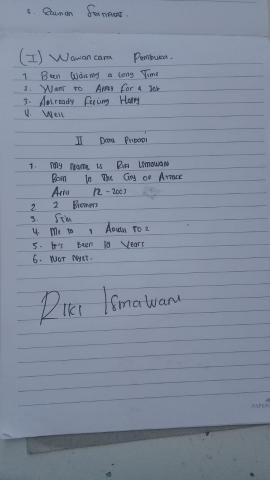 (I) Wawancara Pembuka.
1. Been Waiting a Long Time
2. Want to Apply for a Job
3. Already Feeling Happy
4. Well
II Data Pribadi
1. My Name is Riki Ismawan
Born In The City of
12 - 2003
2. 2 Brothers
3.
4. Me to 1 to 2
5. It's Been 10 Years
6. Not Yet.
Riki Ismawan